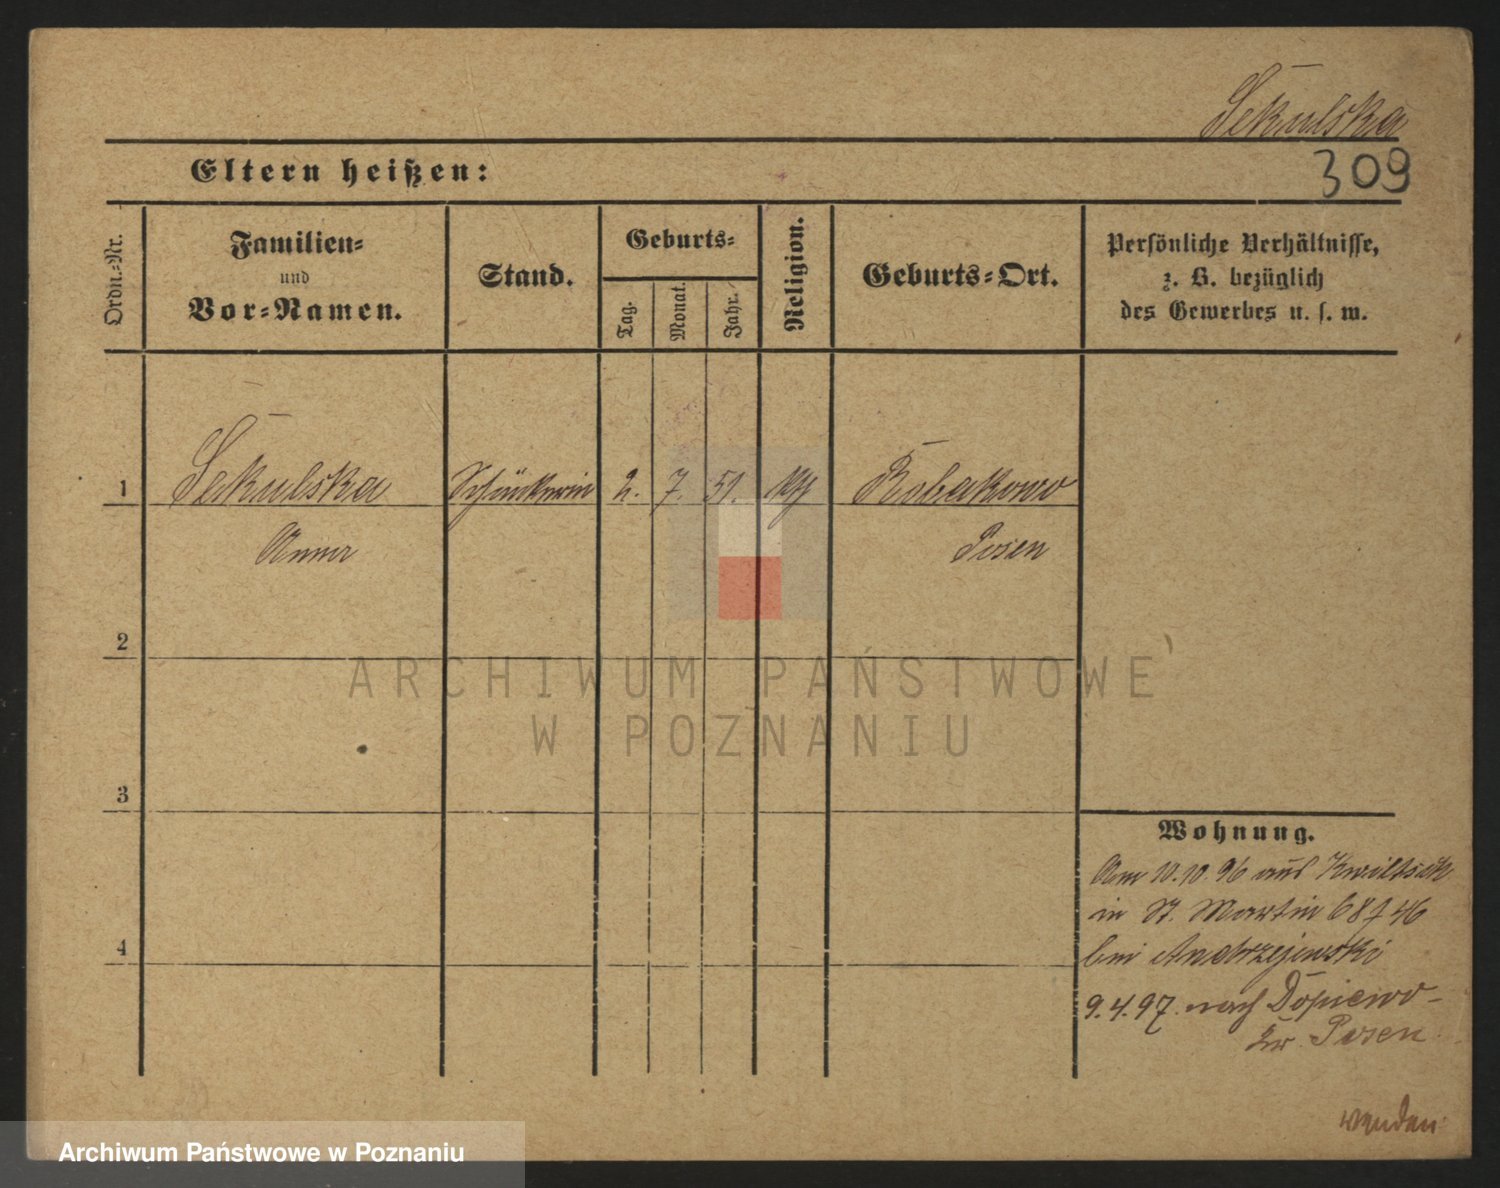 Sekulska
309
Eltern heißen:
Ordn.-Nr.
Familien-
und
Vor-Namen.
Stand.
Geburts-
Tag.
Monat.
Jahr.
Religion.
Geburts-Ort.
Persönliche Verhältnisse,
z. B. bezüglich
des Gewerbes u. s. w.
1 Sekulska 2. 7. 51. Robakowo
Anna Posen
2
3
4
Wohnung.
Am 10.10.96 aus Kwiltsch
in St. Martin 68 f 46
bei Andrzejewski
9.4.97. nach Dopiewo-
Kr. Posen
wenden
ARCHIWUM PAŃSTWOWE
W POZNANIU
Archiwum Państwowe w Poznaniu